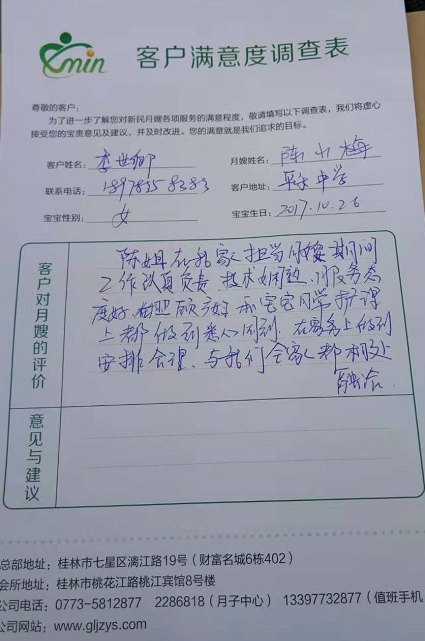 min
客户满意度调查表
尊敬的客户：
为了进一步了解您对新民月嫂各项服务的满意程度，敬请填写以下调查表，我们将虚心
接受您的宝贵意见及建议，并及时改进。您的满意就是我们追求的目标。
客户姓名：李世
月嫂姓名：陈小梅
联系电话：18978358383
客户地址：中学
宝宝性别：女
宝宝生日：2017.10.26
客户对月嫂的评价
陈姐在我家担当月嫂期间
工作认真负责 技术娴熟 服务态
度好 照顾 和宝宝 护理
上都做到悉心周到. 在 上做到
安排合理. 与我们全家人都相处
融洽.
意见与建议
总部地址：桂林市七星区漓江路19号（财富名城6栋402）
会所地址：桂林市桃花江路桃江宾馆8号楼
公司电话：0773-5812877 2286818（月子中心） 13397732877（值班手机
公司网站：www.gljzys.com